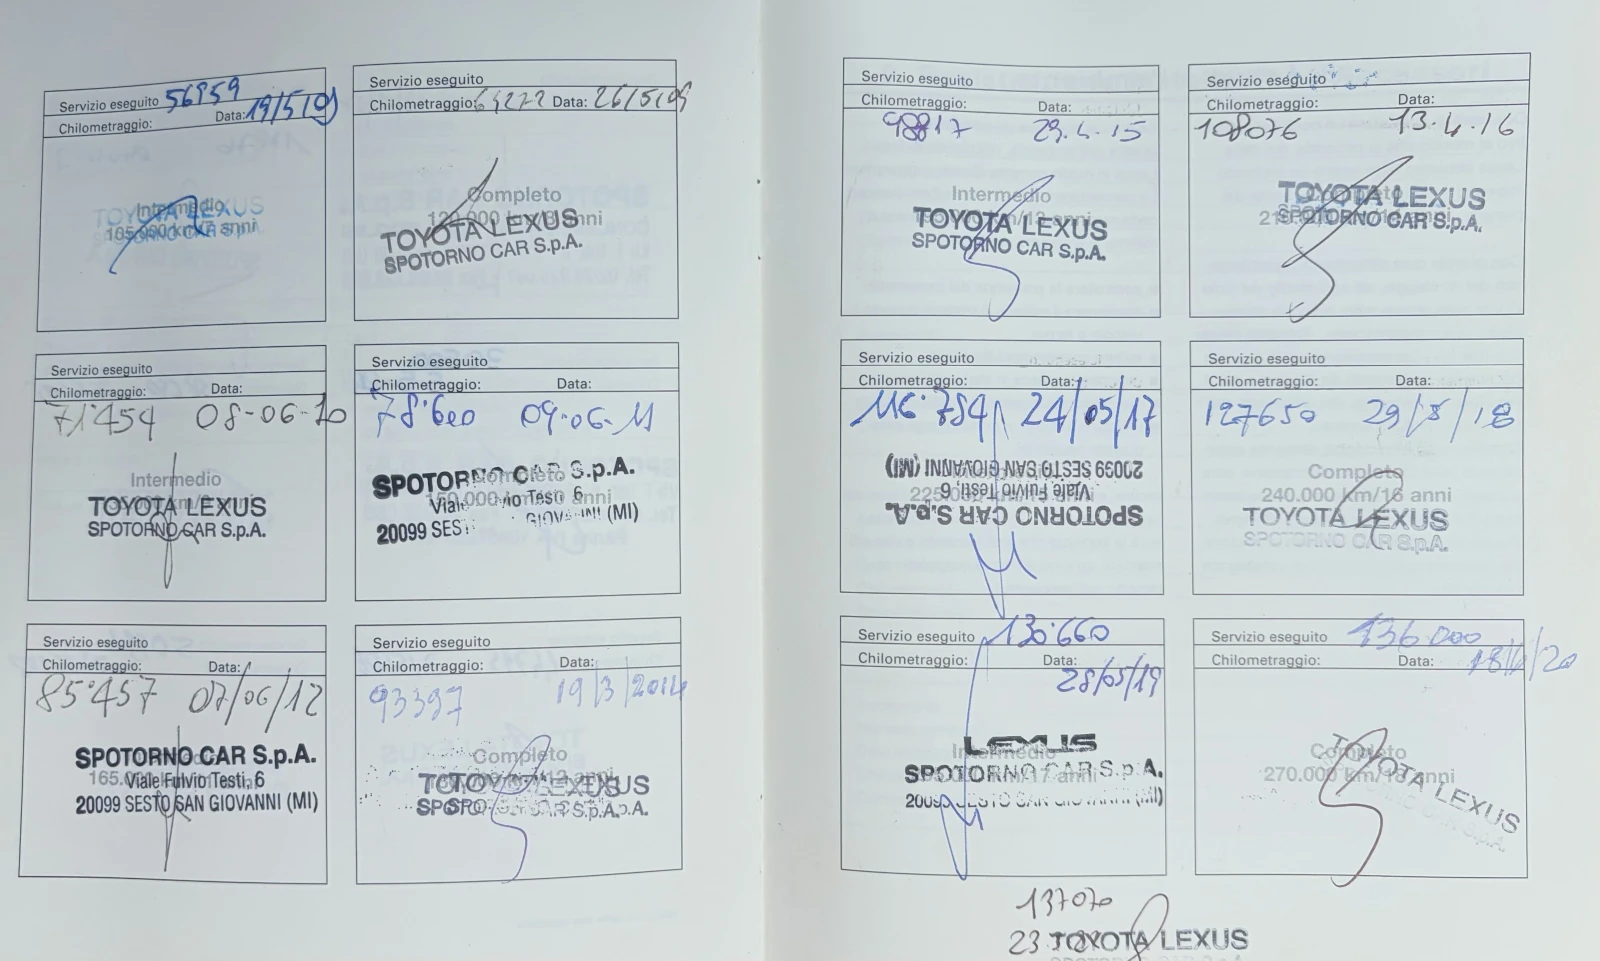 Servizio eseguito 56959
Chilometraggio: Data: 19/5/09
Intermedio
TOYOTA LEXUS
105.000 km/7 anni
SPOTORNO CAR S.p.A.
Servizio eseguito
Chilometraggio: Data: 26/5/09
Completo
120.000 km/8 anni
TOYOTA LEXUS
SPOTORNO CAR S.p.A.
Servizio eseguito
Chilometraggio: Data:
71'454 08-06-10
Intermedio
TOYOTA LEXUS
SPOTORNO CAR S.p.A.
Servizio eseguito
Chilometraggio: Data:
78'600 09-06-11
Completo
SPOTORNO CAR S.p.A.
150.000 anni
Viale
20099 SESTO GIOVANNI (MI)
Servizio eseguito
Chilometraggio: Data:
85'457 07/06/12
SPOTORNO CAR S.p.A.
165.000
Viale Fulvio Testi, 6
20099 SESTO SAN GIOVANNI (MI)
Servizio eseguito
Chilometraggio: Data:
93397 19/3/2014
Completo
TOYOTA LEXUS
SPOTORNO CAR S.p.A.
Servizio eseguito
Chilometraggio: Data:
98817 29.4.15
Intermedio
TOYOTA LEXUS
SPOTORNO CAR S.p.A.
Servizio eseguito
Chilometraggio: Data:
108076 13.4.16
Completo
TOYOTA LEXUS
SPOTORNO CAR S.p.A.
Servizio eseguito
Chilometraggio: Data:
116.784 24/05/17
20099 SESTO SAN GIOVANNI (MI)
Viale Fulvio Testi, 6
SPOTORNO CAR S.p.A.
Servizio eseguito
Chilometraggio: Data:
127650 29/5/18
Completo
240.000 km/16 anni
TOYOTA LEXUS
SPOTORNO CAR S.p.A.
Servizio eseguito 130.660
Chilometraggio: Data:
28/05/19
LEXUS
Intermedio
SPOTORNO CAR S.p.A.
17 anni
20099 SESTO SAN GIOVANNI (MI)
Servizio eseguito 136.000
Chilometraggio: Data:
Completo
270.000 km/18 anni
TOYOTA LEXUS
SPOTORNO CAR S.p.A.
137070
23
TOYOTA LEXUS